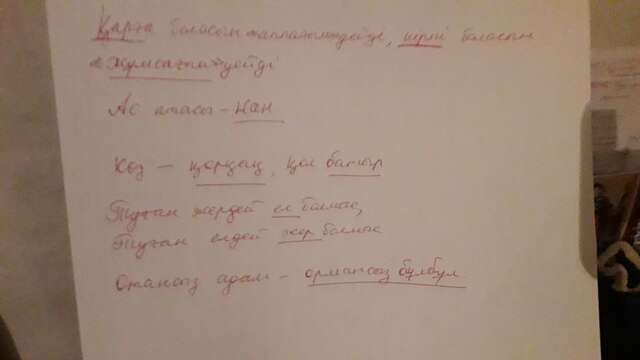 Қарға баласын аппағым дейді, керпі баласын
жұмсағым дейді
Ас атасы – нан
Көз – қорқақ, қол батыр
Туған жердей ел болмас,
Туған елдей жер болмас
Отансыз адам – ормансыз бұлбұл